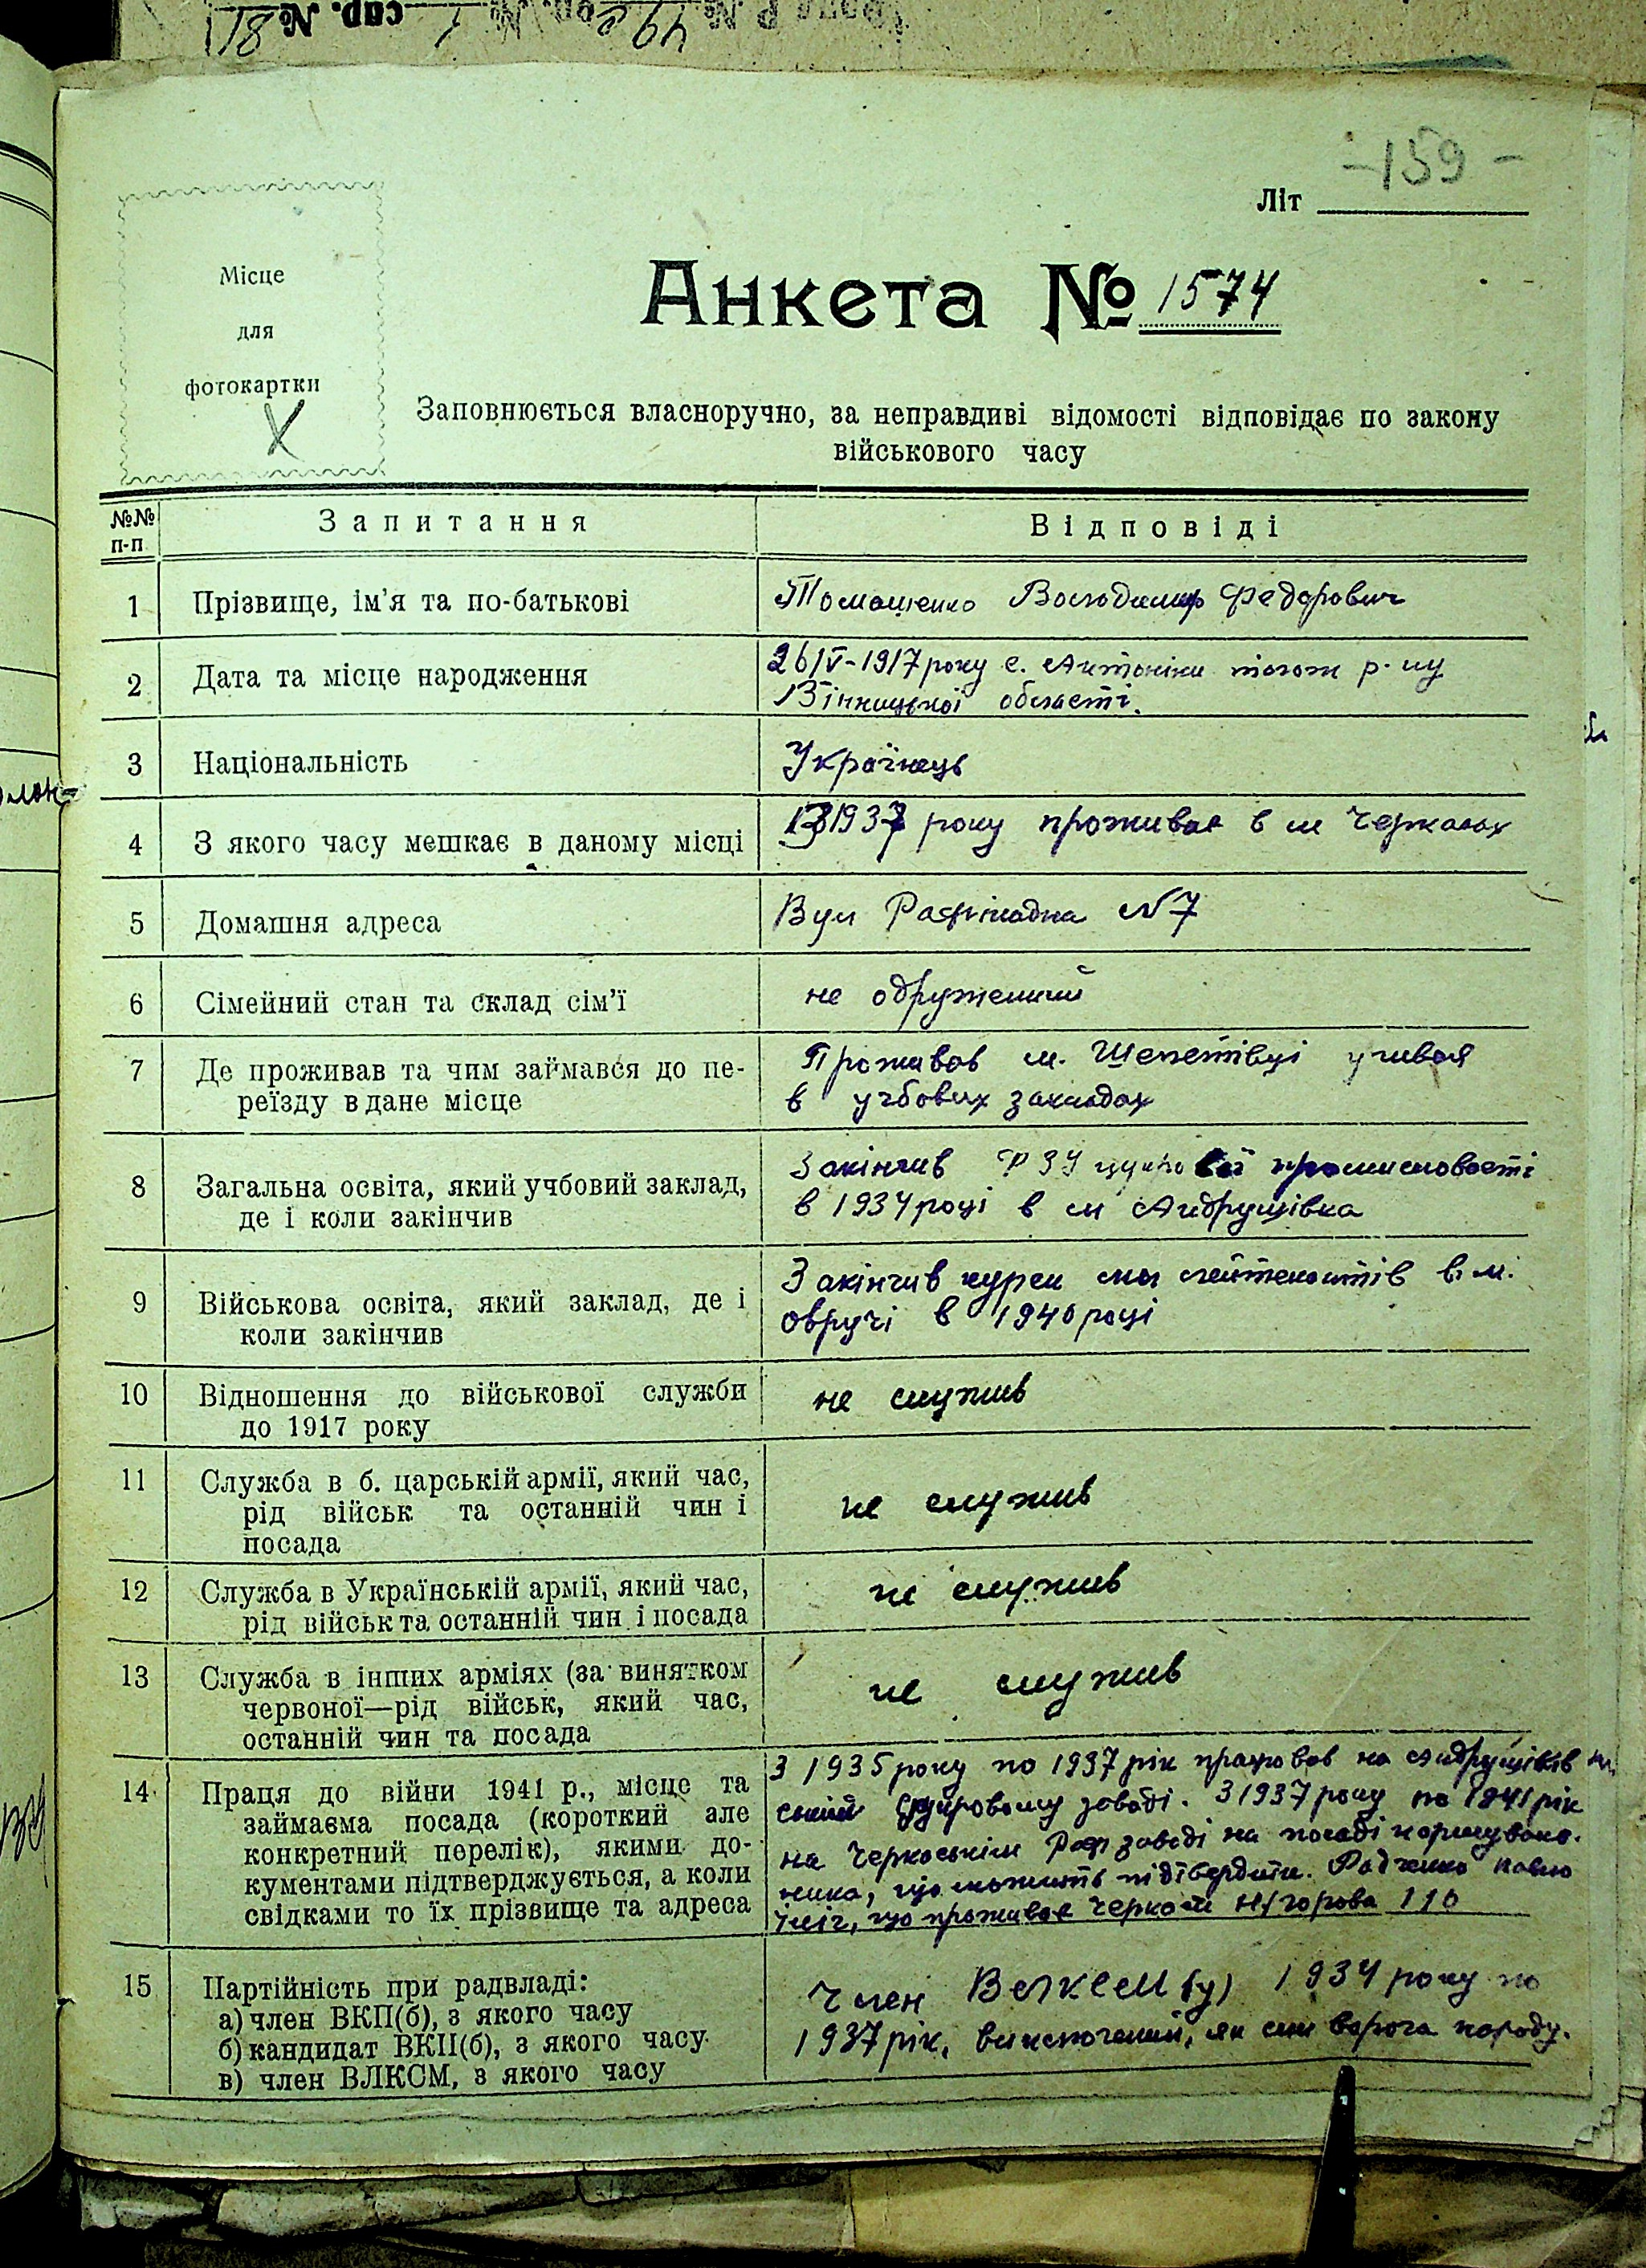 спр. № 811
-159-
Літ
Місце
для
фотокартки
Анкета № 1574
Заповнюється власноручно, за неправдиві відомості відповідає по закону
військового часу
№№ п-п
Запитання
Відповіді
1
Прізвище, ім'я та по-батькові
Томащенко Володимир Федорович
2
Дата та місце народження
26/V-1917 року с. Антоніни тогож р-ну
Вінницької області.
3
Національність
Українець
4
З якого часу мешкає в даному місці
З 1937 року проживає в м Черкасах
5
Домашня адреса
Вул Рафінадна №7
6
Сімейний стан та склад сім'ї
не одружений
7
Де проживав та чим займався до пе-
реїзду в дане місце
Проживав м. Шепетівці учився
в учбових закладах
8
Загальна освіта, який учбовий заклад,
де і коли закінчив
Закінчив ФЗУ цукрової промисловості
в 1934 році в м Андрушівка
9
Військова освіта, який заклад, де і
коли закінчив
Закінчив курси мол лейтенантів в м.
Овручі в 1940 році
10
Відношення до військової служби
до 1917 року
не служив
11
Служба в б. царській армії, який час,
рід військ та останній чин і
посада
не служив
12
Служба в Українській армії, який час,
рід військ та останній чин і посада
не служив
13
Служба в інших арміях (за винятком
червоної—рід військ, який час,
останній чин та посада
не служив
14
Праця до війни 1941 р., місце та
займаєма посада (короткий але
конкретний перелік), якими до-
кументами підтверджується, а коли
свідками то їх прізвище та адреса
З 1935 року по 1937 рік працював на Андрушівів
ський цукровому заводі. З 1937 року по 1941 рік
на Черкаськім Раф заводі на посаді нормувала-
ника, що можить підтвердити. Радченко Павло
що проживає Черкаси 110
15
Партійність при радвладі:
а) член ВКП(б), з якого часу
б) кандидат ВКП(б), з якого часу
в) член ВЛКСМ, з якого часу
Член ВЛКСМ(у) 1934 року по
1937 рік, виключений, як син ворога народу.